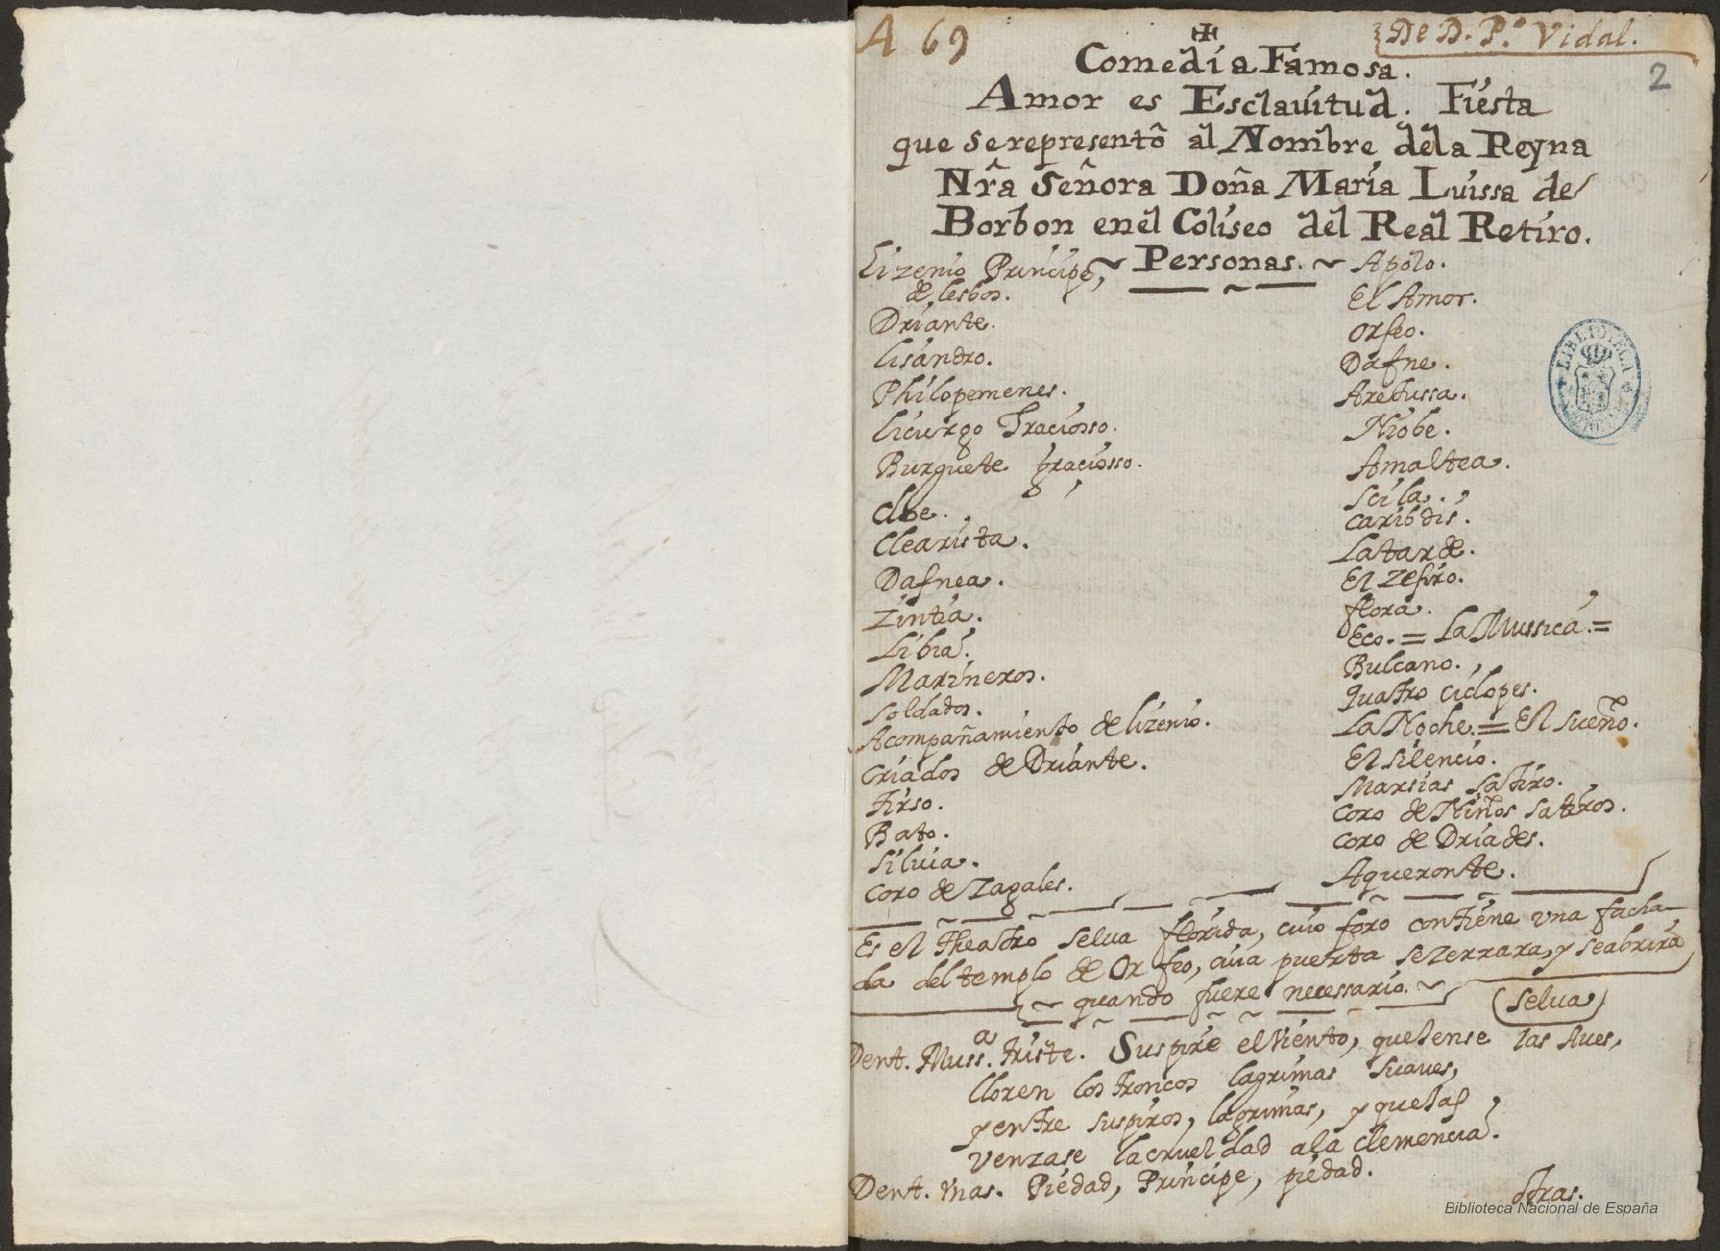 A 69
De D. P.º Vidal.
2
Comedia Famosa.
Amor es Esclavitud. Fiesta
que serepresentô al Nombre dela Reyna
Nrã Señora Doña Maria Luissa de
Borbon enel Coliseo del Real Retiro.
~ Personas. ~
Lizenio Principe,
de lesbos.
Driante.
Lisandro.
Philopemenes.
Licurgo Graciosso.
Burguete graciosso.
Cloe.
Clearista.
Dafnea.
Zintia.
Libia.
Marineros.
Soldados.
Acompañamiento de lizenio.
Criados de Driante.
Tirso.
Bato.
Silvia.
Coro de Zagales.
Apolo.
El Amor.
Orfeo.
Dafne.
Aretussa.
Niobe.
Amaltea.
Scila.
Caribdis.
La tarde.
El Zefiro.
flora.
Eco. = La Mussica. =
Bulcano.
quatro ciclopes.
La Noche. = El sueño.
El silencio.
Marsias satiro.
Coro de Niños satiros.
Coro de Driades.
Aqueronte.
Es el theatro selva florida, cuio foro contiene una facha-
da del templo de Orfeo, cuia puerta sezerrara, y seabrira
~ quando fuere necessario. ~
Selva
Dent. Muss.ª triste. Suspire el viento, quexense las Aves,
lloren los troncos lagrimas suaves,
y entre suspiros, lagrimas, y quexas,
venzase la crueldad a la clemencia.
Dent. vnas. Piedad, Principe, piedad.
otras.
Biblioteca Nacional de España